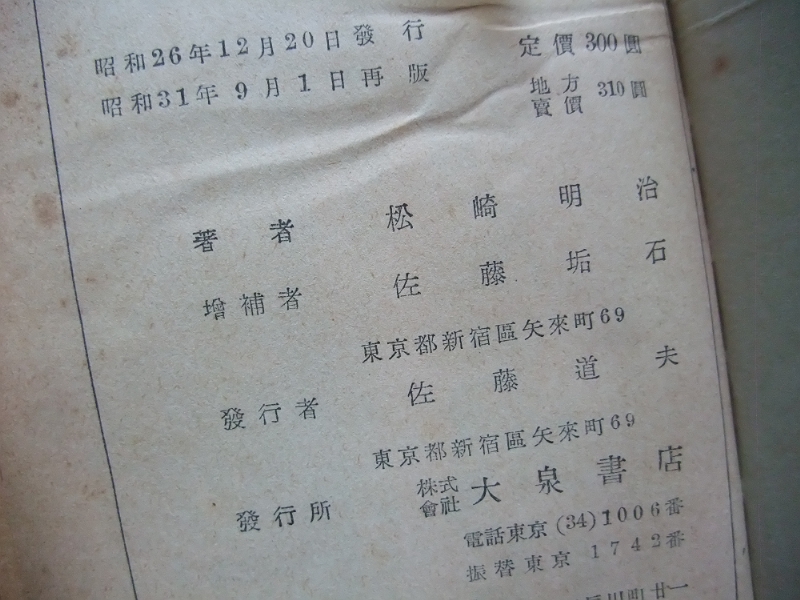 昭和26年12月20日發行
昭和31年9月1日再版
定價300圓
地方賣價 310圓
著者 松崎明治
增補者 佐藤垢石
東京都新宿區矢來町69
發行者 佐藤道夫
東京都新宿區矢來町69
發行所 株式會社 大泉書店
電話東京(34)1006番
振替東京 1742番
川町廿一